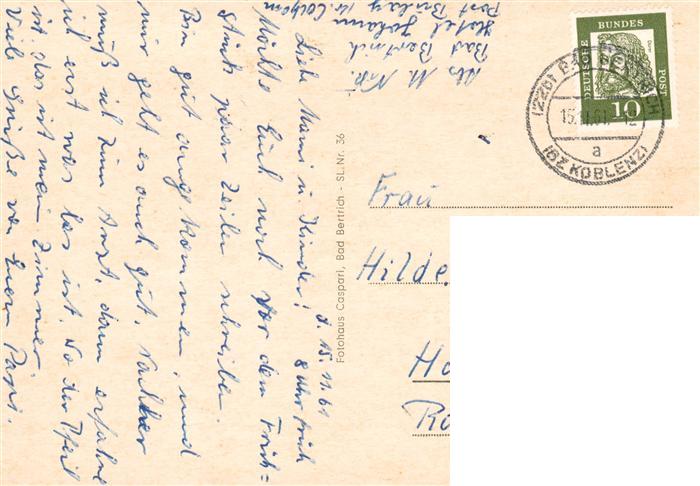 Liebe Mami u. Kinder! d. 15.11.61
8 Uhr früh
Möchte Euch noch vor dem Früh=
stück paar Zeilen schreiben.
Bin gut angekommen, und
mir geht es auch gut. Nachher
muß ich zum Arzt, dann erfahre
ich erst was los ist. Wo der Pfeil
ist das ist mein Zimmer.
Viele Grüße von Euern Papi.
Abs. M.
Bad Bertrich
Hotel Johann
Post Kr. Cochem
Fotohaus Caspari, Bad Bertrich - SL.Nr. 36
DEUTSCHE BUNDES POST
10
(22b) BAD BERTRICH
15.11.61
a
(BZ KOBLENZ)
Frau
Hilde
Ho
Ro